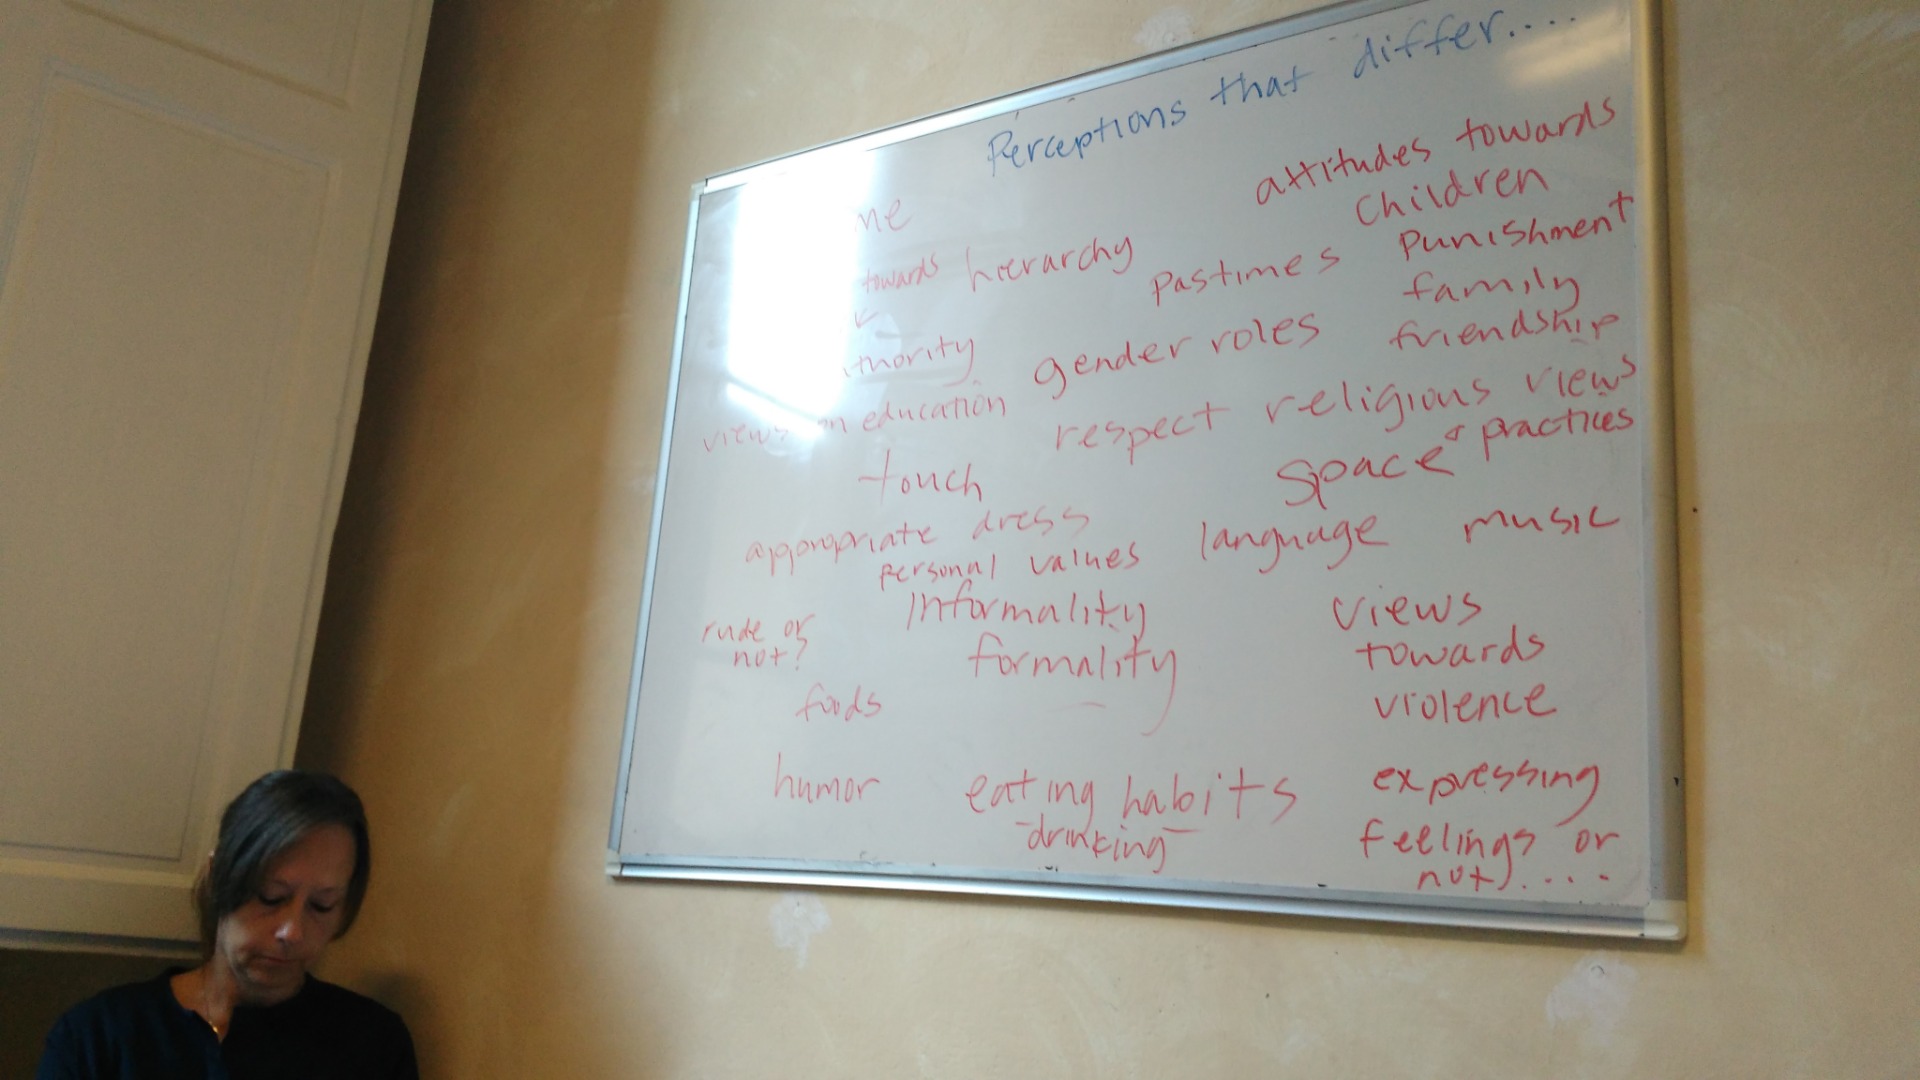 Perceptions that differ....
attitudes towards
children
towards hierarchy
pastimes
punishment
family
gender roles
friendship
views on education
respect
religious views
& practices
touch
space
appropriate dress
language
music
personal values
informality
formality
rude or
not?
views
towards
violence
foods
humor
eating habits
drinking
expressing
feelings or
not)....